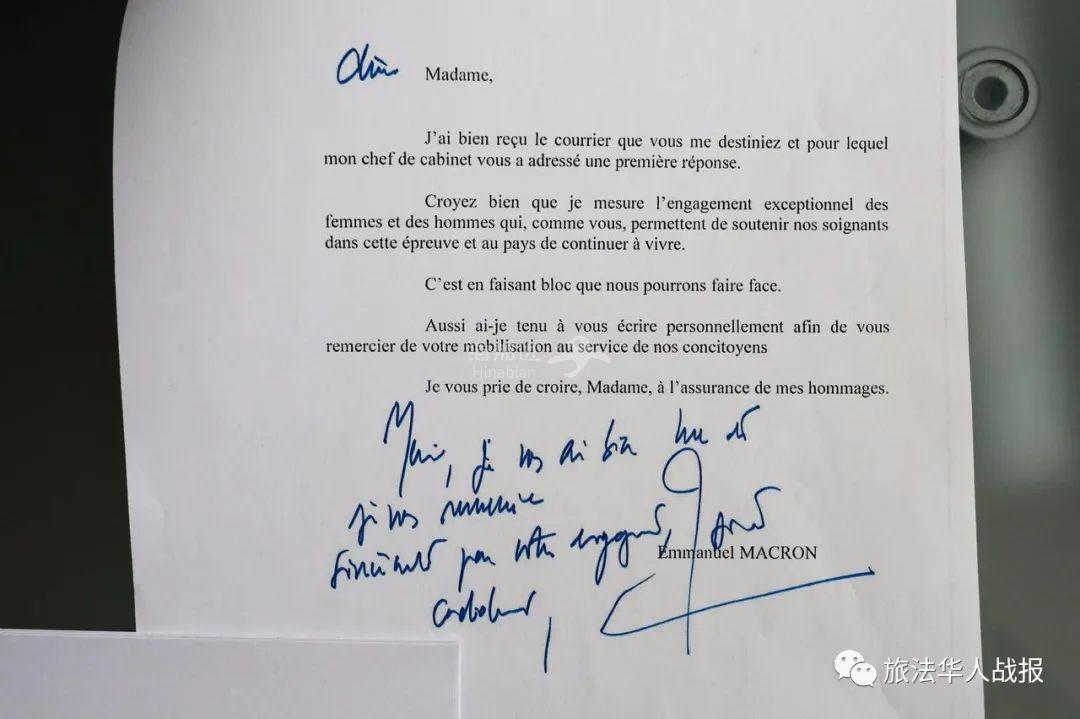 Chère Madame,
J'ai bien reçu le courrier que vous me destiniez et pour lequel
mon chef de cabinet vous a adressé une première réponse.
Croyez bien que je mesure l'engagement exceptionnel des
femmes et des hommes qui, comme vous, permettent de soutenir nos soignants
dans cette épreuve et au pays de continuer à vivre.
C'est en faisant bloc que nous pourrons faire face.
Aussi ai-je tenu à vous écrire personnellement afin de vous
remercier de votre mobilisation au service de nos concitoyens
海那边
Hinabian
Je vous prie de croire, Madame, à l'assurance de mes hommages.
Merci, je vous ai bien lue et
je vous remercie
sincèrement pour votre engagement,
Emmanuel MACRON
Cordialement,
旅法华人战报